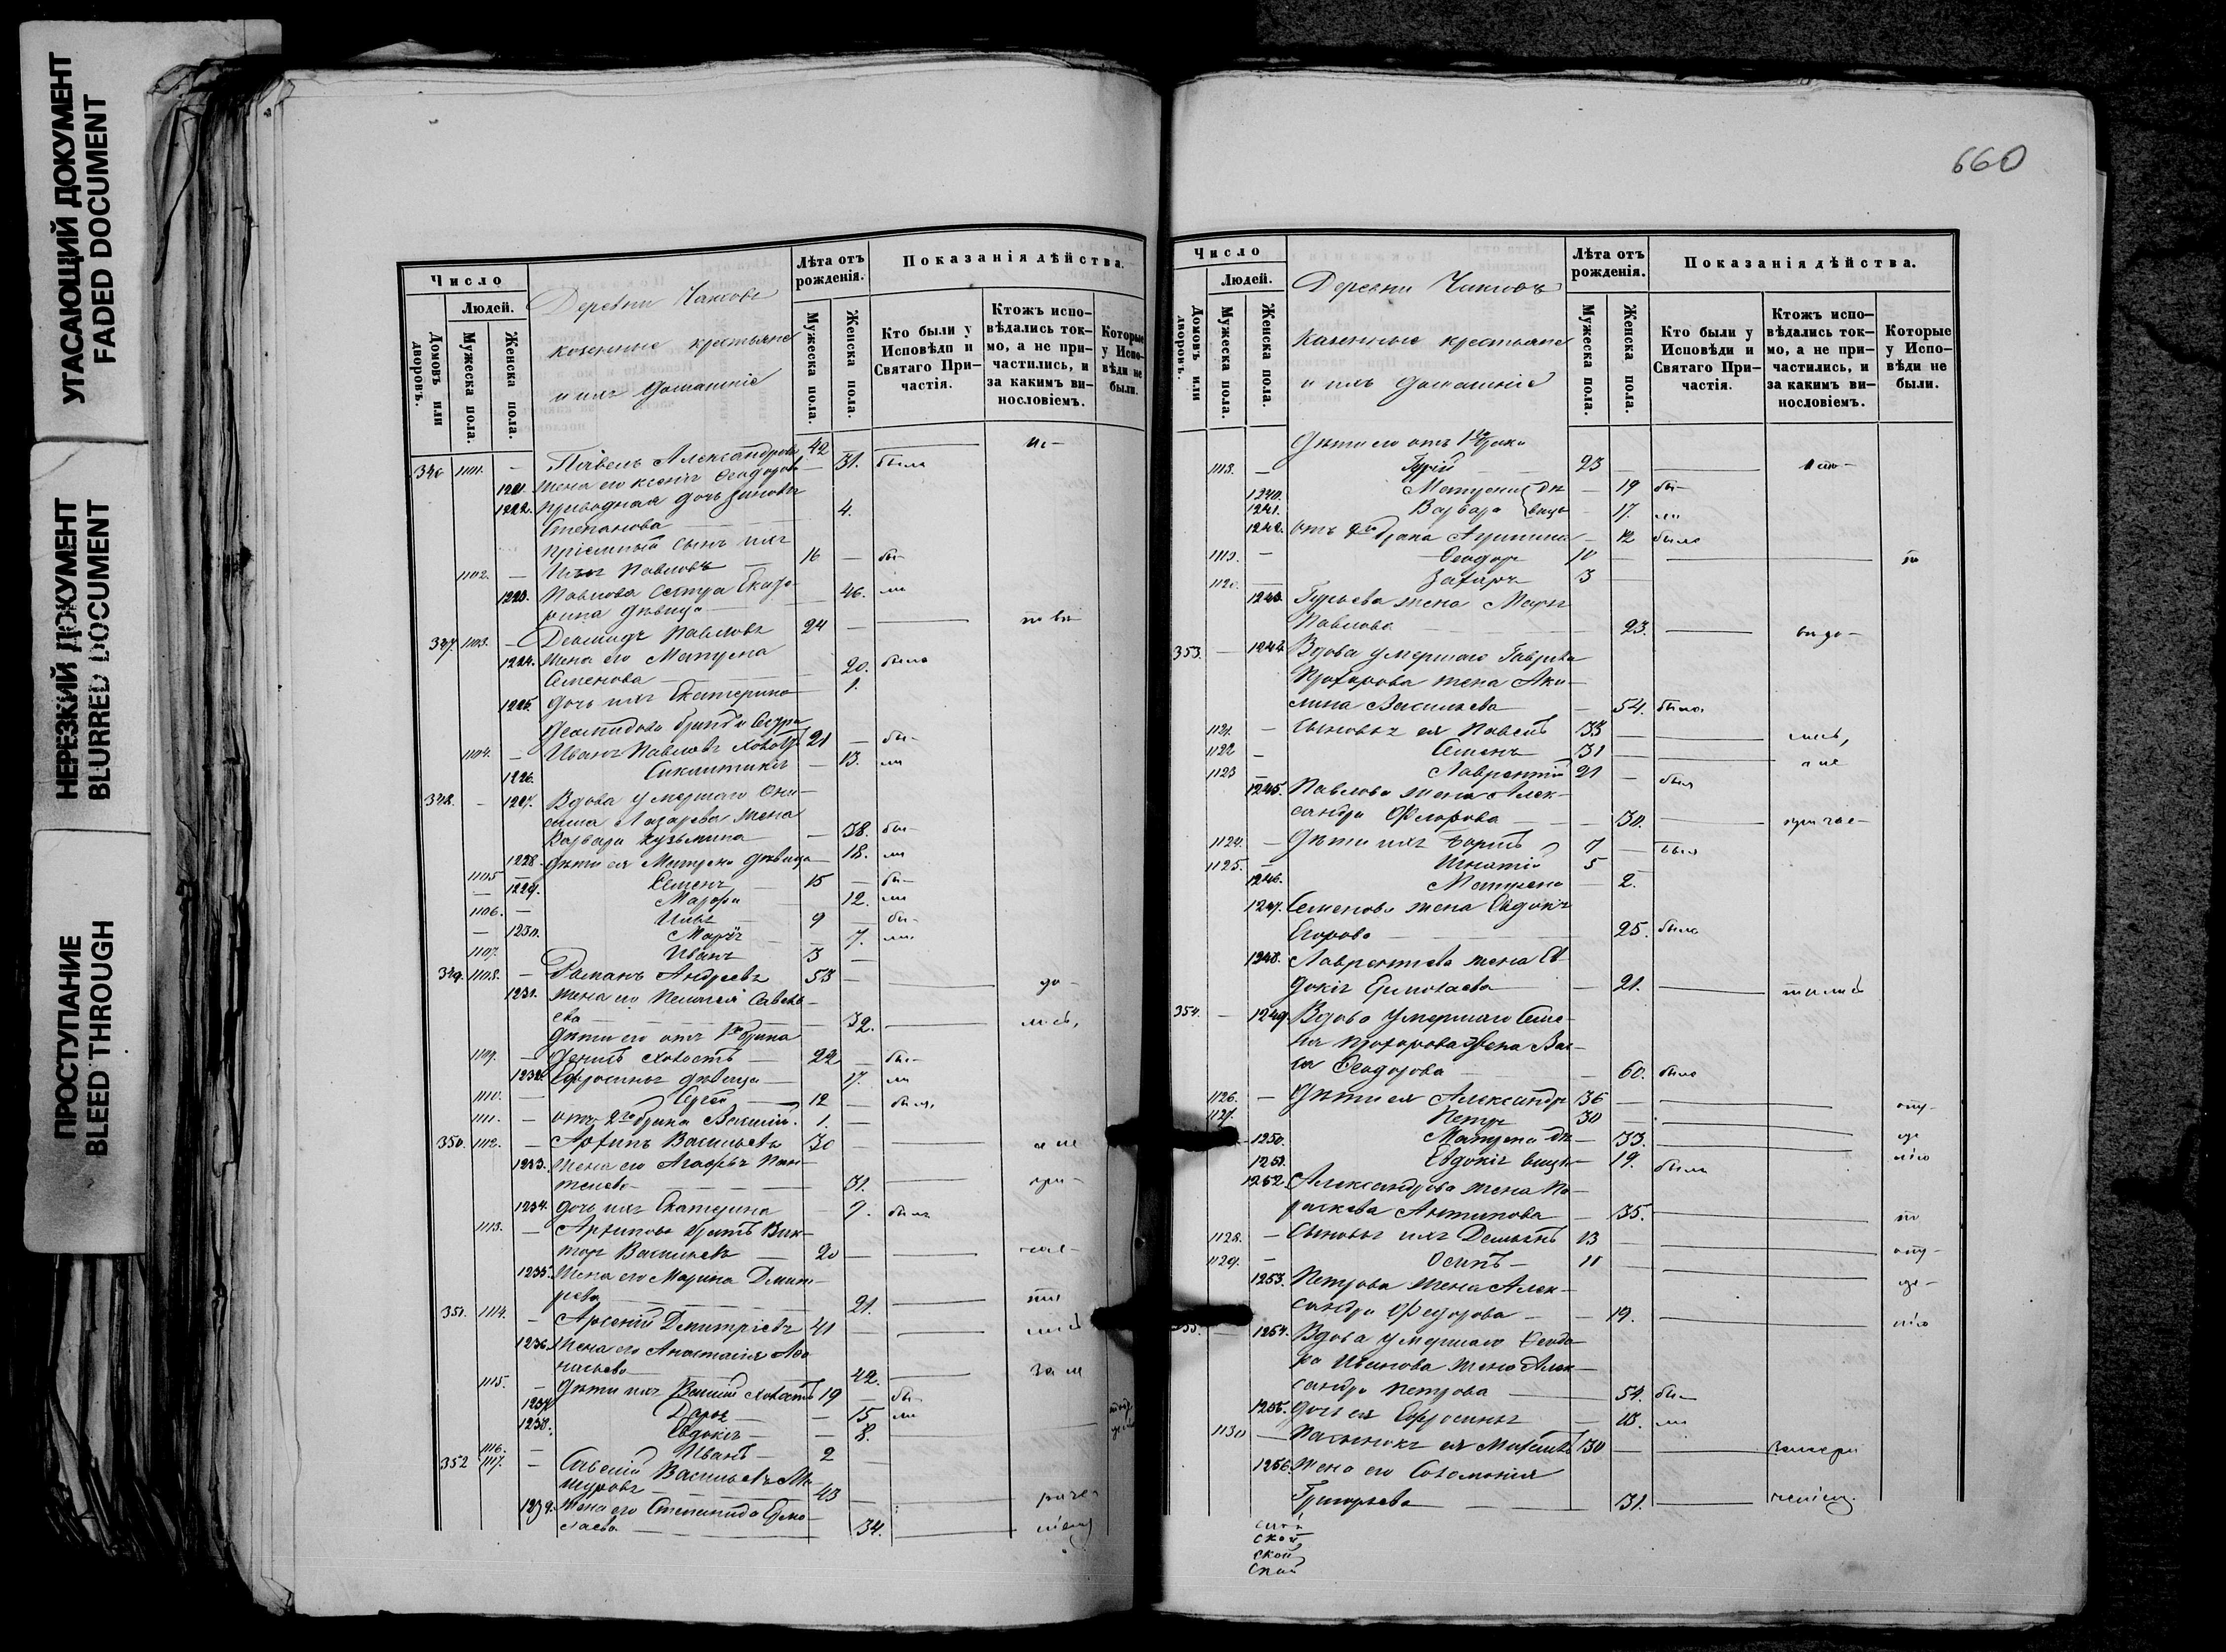 УГАСАЮЩИЙ ДОКУМЕНТ
FADED DOCUMENT
НЕРЕЗКИЙ ДОКУМЕНТ
BLURRED DOCUMENT
ПРОСТУПАНИЕ
BLEED THROUGH
Число
Людей.
Домовъ или дворовъ.
Мужеска пола.
Женска пола.
Деревни
казенные крестьяне
и ихъ домашніе
Лѣта отъ рожденія.
Мужеска пола.
Женска пола.
Показанія дѣйства.
Кто были у Исповѣди и Святаго Причастія.
Ктожъ исповѣдались токмо, а не причастились, и за какимъ винословіемъ.
Которые у Исповѣди не были.
346 1101. — Павелъ Александровъ 42
1221. Жена его Ксенія Феодорова — 31. была
1222. Приводная дочь Зиновія
Степанова 4.
Пріемный сынъ ихъ
1102. — Илья Павловъ 16 — бы-
1223. Павлова сестра Екате-
рина дѣвица 46. ли
347. 1103. — Деомидъ Павловъ 24 —
1224. Жена его Матрена
Семенова 20. была
1225. Дочь ихъ Екатерина 1.
Деомидова братъ и сестра
1104. — Иванъ Павловъ холостъ 21 — бы-
1226. Синклитикія — 13. ли
348. — 1227. Вдова умершаго Они-
сима Лазарева жена
Варвара Кузьмина — 38. бы-
1228. Дѣти ея Матрена дѣвица 18. ли
1105 — Семенъ 15 — бы-
— 1229. Марфа 12. ли
1106. — Илья 9 бы-
— 1230. Марія 7. ли
1107. Иванъ 3 —
349. 1108. — Романъ Андреевъ 53 — до-
1231. Жена его Пелагея Савель-
ева 32.
Дѣти его отъ 1го брака
1109. — Денисъ холостъ 22 — бы-
1232. Ефросинья дѣвица 17. ли
1110. — Сергей 12 — былъ
1111. — отъ 2го брака Василій. 1. —
350. 1112. — Архипъ Васильевъ 30 —
1233. Жена его Агафья Пан-
телеева 31. при-
1234. Дочь ихъ Екатерина 9. была
1113. — Архипова братъ Вик-
торъ Васильевъ 20 —
1235. Жена его Марина Дмит-
рева 21.
351. 1114. — Арсеній Дмитріевъ 41 —
1236. Жена его Анастасія Афа
насьева 42. за не
1115. — Дѣти ихъ Василій холостъ 19 бы-
1237. Дарья — 15 ли
1238. Евдокія — 8.
1116. — Иванъ 2
352 1117. — Савелій Васильевъ
43
1239. Жена его Степанида Ермо-
лаева 34. ніемъ
660
Число
Людей.
Домовъ или дворовъ.
Мужеска пола.
Женска пола.
Деревни
Казенные крестьяне
и ихъ домашніе
Лѣта отъ рожденія.
Мужеска пола.
Женска пола.
Показанія дѣйства.
Кто были у Исповѣди и Святаго Причастія.
Ктожъ исповѣдались токмо, а не причастились, и за какимъ винословіемъ.
Которые у Исповѣди не были.
Дѣти его отъ 1го брака
1118. — Гурій 23 —
1240. Матрена дѣ — 19 бы-
1241. Варвара вицы 17. ли
1242. отъ 2го брака Агрипина — 12 была
1119. — Феодоръ 10 — по
1120. — Захаръ 3 —
1243. Гурьева жена Марія
Павлова 23.
353. — 1244. Вдова умершаго Гаврила
Прохорова жена Аку-
лина Васильева 54. была
1121. — Сыновья ея Павелъ 33 —
1122 — Семенъ 31 а не
1123 — Лаврентій 21 — былъ
1245. Павлова жена Алек-
сандра Флорова 30. причас-
1124. — Дѣти ихъ 7 — былъ
1125. — Игнатій 5
1246. Матрена — 2.
1247. Семенова жена Евдокія
Егорова 25. была
1248. Лаврентьева жена Ев
докія Ермолаева 21. тились
354. — 1249. Вдова умершаго Семе-
на Прохорова жена Вас-
са Феодорова 60. была
1126. — Дѣти ея Александръ 36 — отлу-
1127. Петръ 30
1250. Матрена дѣ — 33.
1251. Евдокія вицы — 19. была
1252. Александрова жена Па-
раскева Антипова — 35. по
1128. — Сыновья ихъ Демьянъ 13 — отлу-
1129. — Осипъ — 11
1253. Петрова жена Алек-
сандра Федорова — 19.
355. — 1254. Вдова умершаго
Иванова жена Алек-
сандра Петрова 54. бы-
1255. Дочь ея Ефросинья — 18. ли
1130 — Пасынокъ ея Михаилъ 30 —
1256. Жена его Соломонія
Григорьева 31.
ской
ской